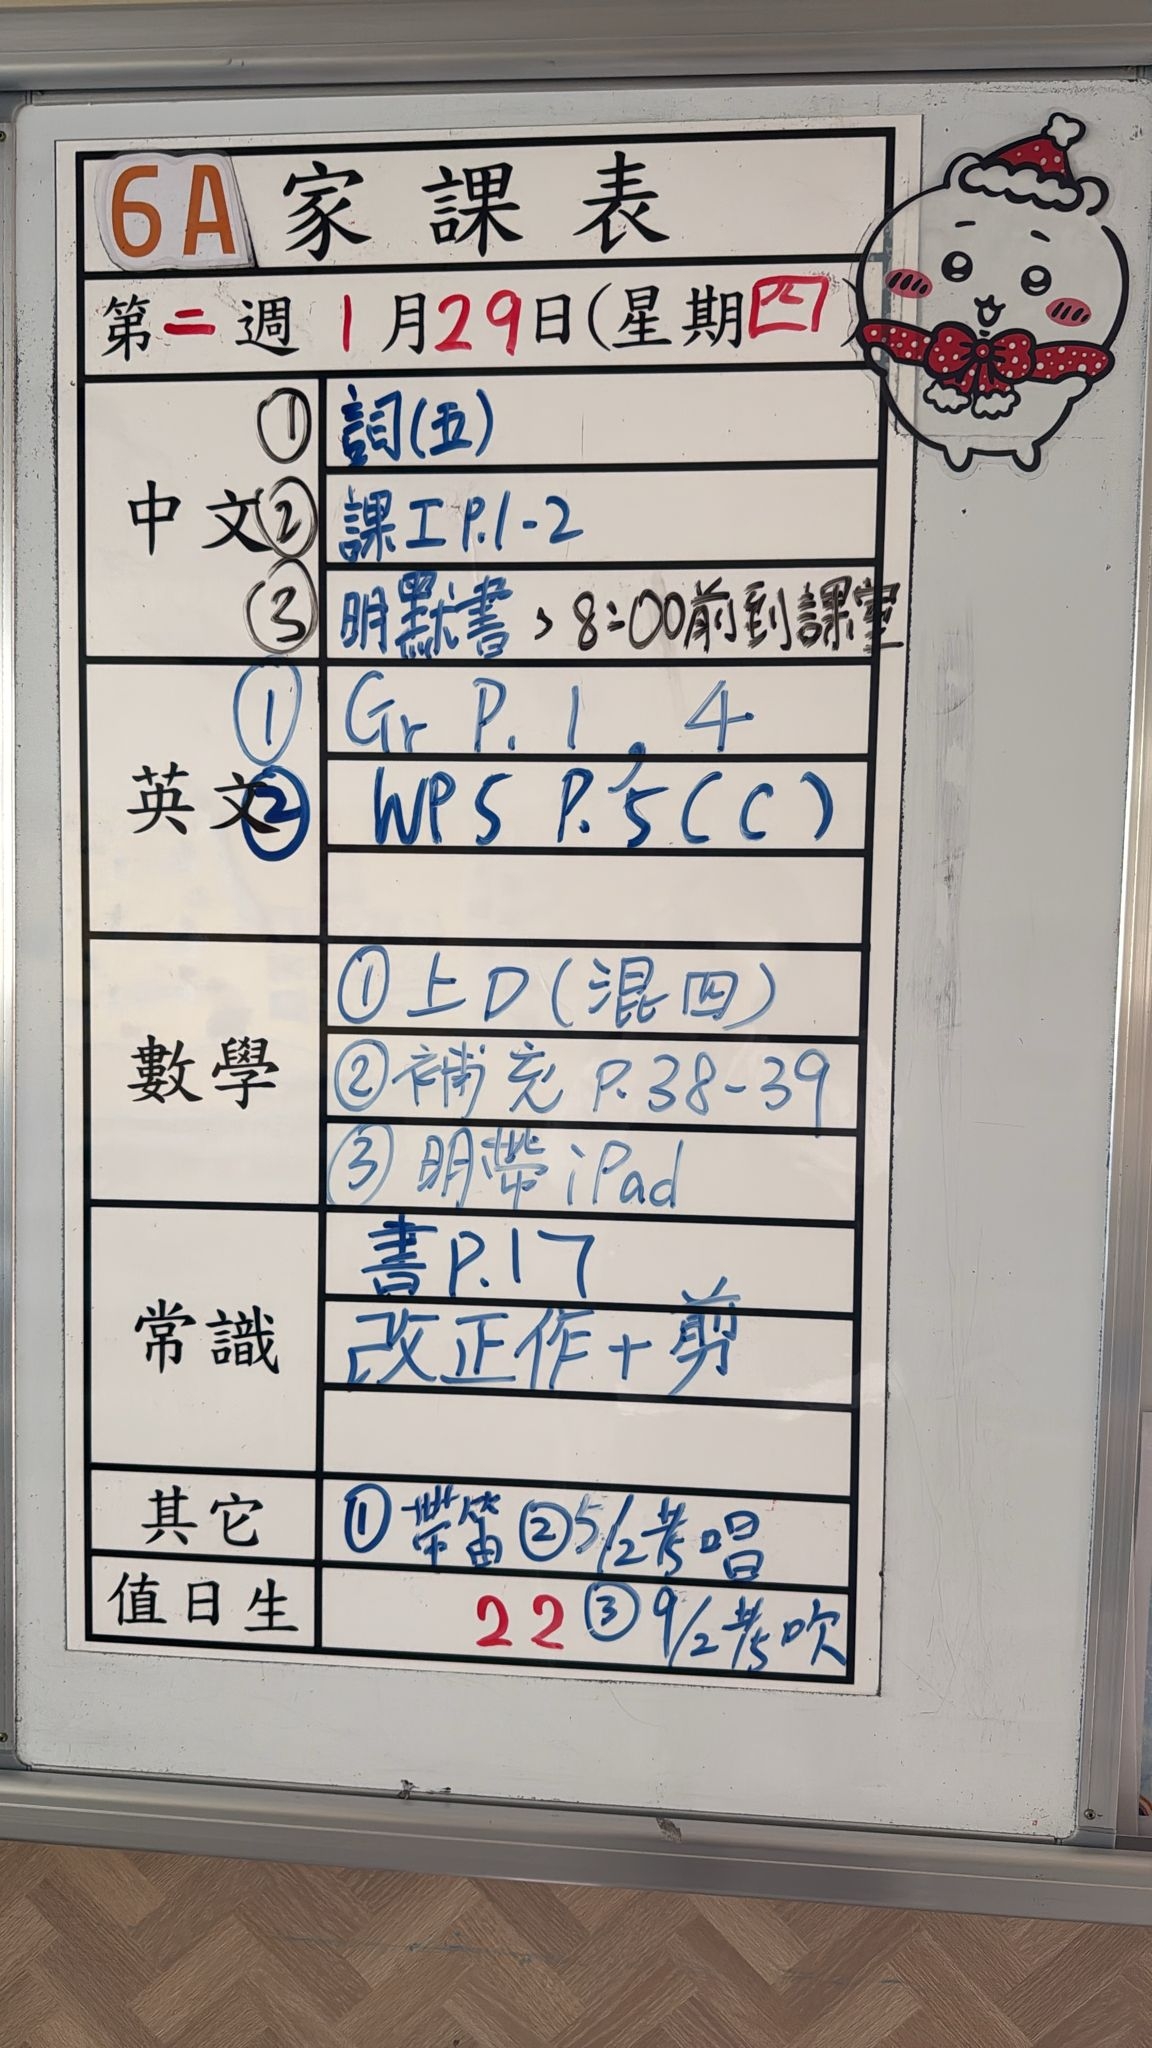 6A 家課表
第二週 1月29日(星期四)
中文
① 詞(五)
② 課工P.1-2
③ 明默書，8:00前到課室
英文
① Gr P. 1, 4
② WPS P.5(C)
數學
① 上D(混四)
② 補充 P.38-39
③ 明帶iPad
常識
書P.17
改正作+剪
其它
① 帶笛 ② 5/2考唱
值日生
22 ③ 9/2考吹